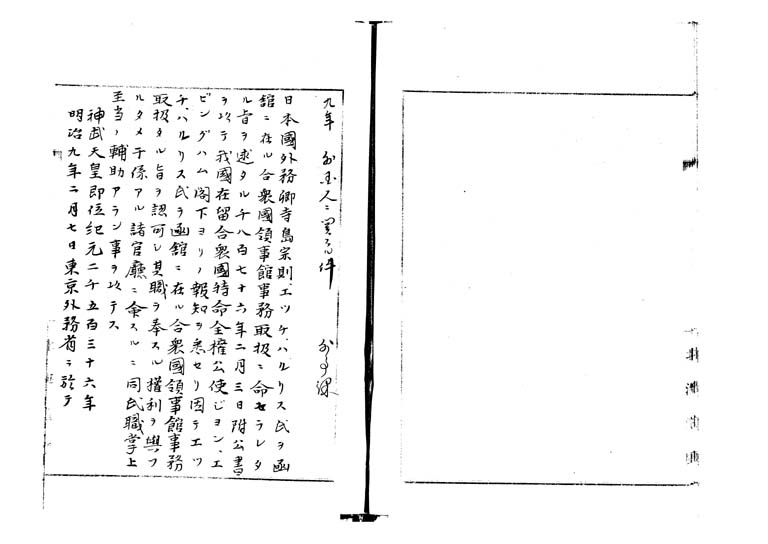 九年 外国人ニ関スル件 外事課
日本國外務卿寺島宗則エッケ、ハルリス氏ヲ函
舘ニ在ル合衆國領事館事務取扱ニ命セラレタ
ル旨ヲ述タル千八百七十六年二月三日附公書
ヲ以テ我國在留合衆國特命全権公使ジヨン、エ
ビングハム閣下ヨリノ報知ヲ悉セリ因テエッ
チ、ハルリス氏ヲ函舘ニ在ル合衆國領事館事務
取扱タル旨ヲ認可シ其職ヲ奉スル権利ヲ與フ
ルタメ干係アル諸官廳ニ命スルニ同氏職掌上
至当ノ輔助アラン事ヲ以テス
神武天皇即位紀元二千五百三十六年
明治九年二月七日東京外務省ニ於テ